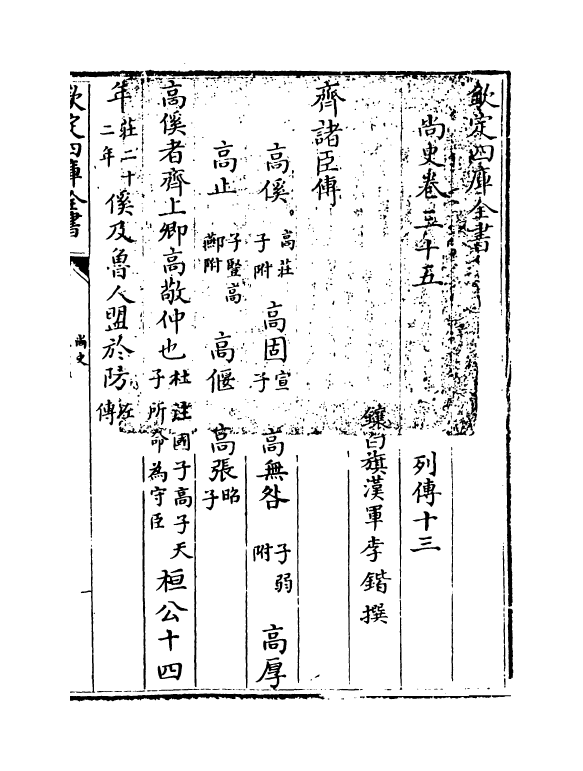 欽定四庫全書
尚史卷五十五　列傳十三
鑲白旗漢軍李鍇撰
齊諸臣傳
高傒。高莊子附　高固宣子　高無咎子弱附　高厚
高止子豎高酀附　高偃　高張昭子
高傒者齊上卿高敬仲也杜注國子高子天子所命為守臣桓公十四
年莊二十二年傒及魯人盟於防左傳
欽定四庫全書
尚史